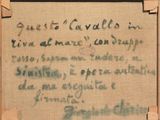 Questo "Cavallo in
riva al mare", con drappo
rosso, sopra un rudere, a
sinistra, è opera autentica
da me eseguita e
firmata:
Giorgio de Chirico